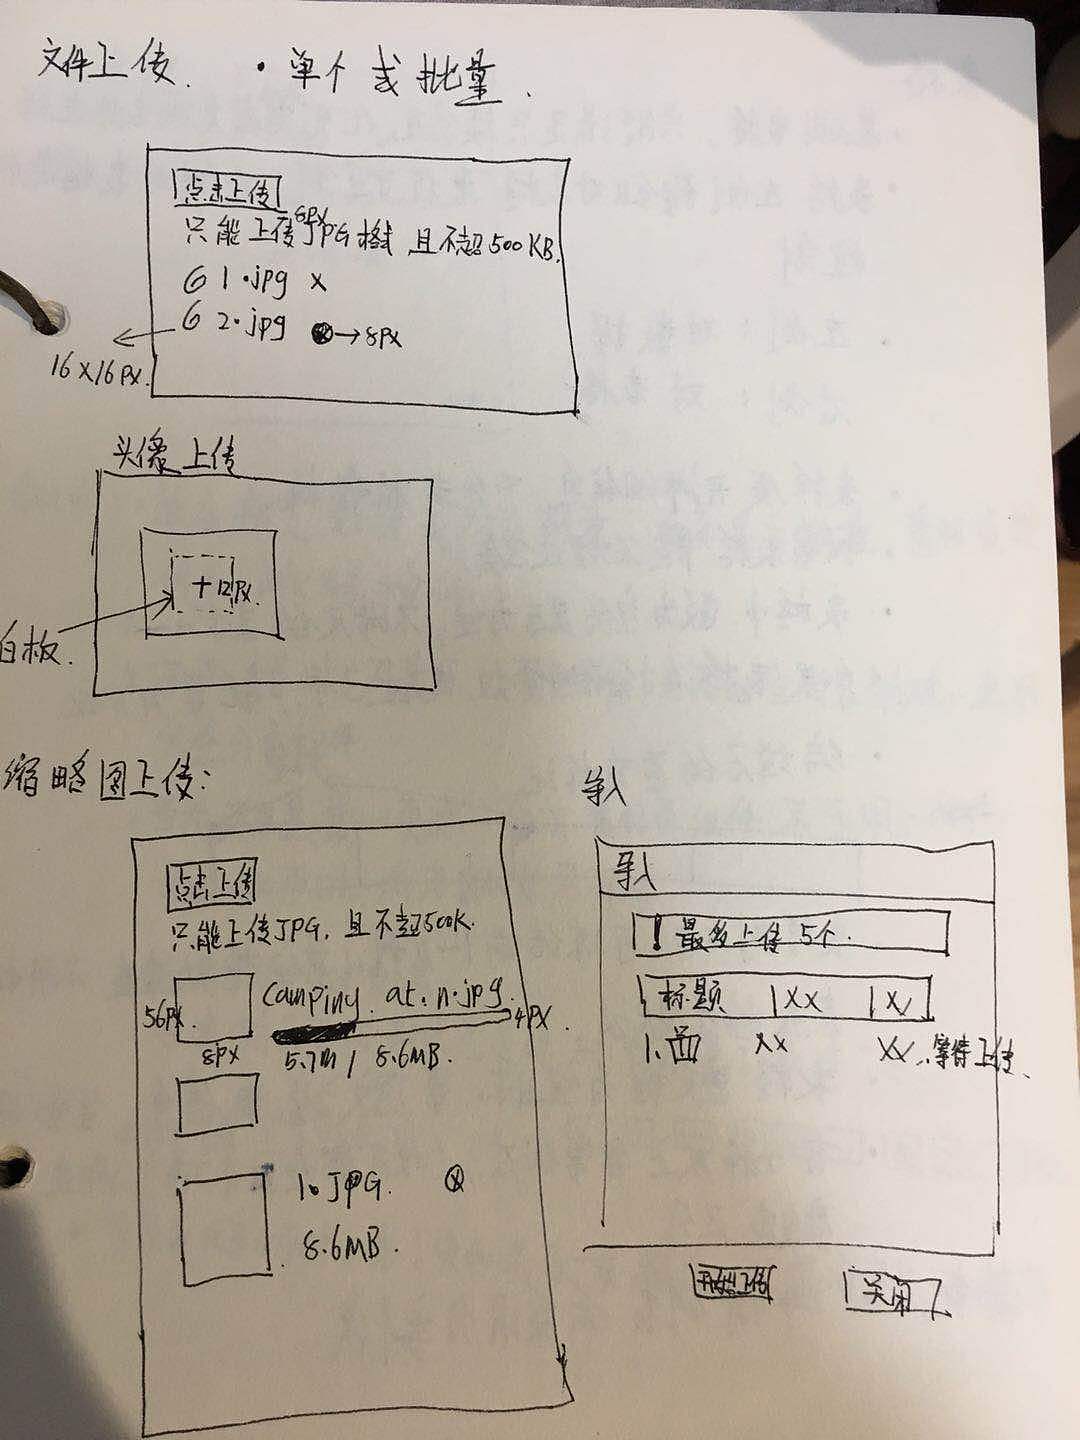 文件上传. ·单个或批量.
点击上传
8PX
只能上传JPG格式,且不超500KB.
1·jpg x
2·jpg ⓧ→8PX
16X16PX.
头像上传
+12PX.
白板.
缩略图上传:
点击上传
只能上传JPG,且不超500K.
56PX.
camping.at.n.jpg.
4PX.
8PX
5.7M / 8.6MB.
1.JPG. ⓧ
8.6MB.
导入
导入
! 最多上传5个.
标题 XX X/
1.面 XX XX 等待上传.
开始上传
关闭